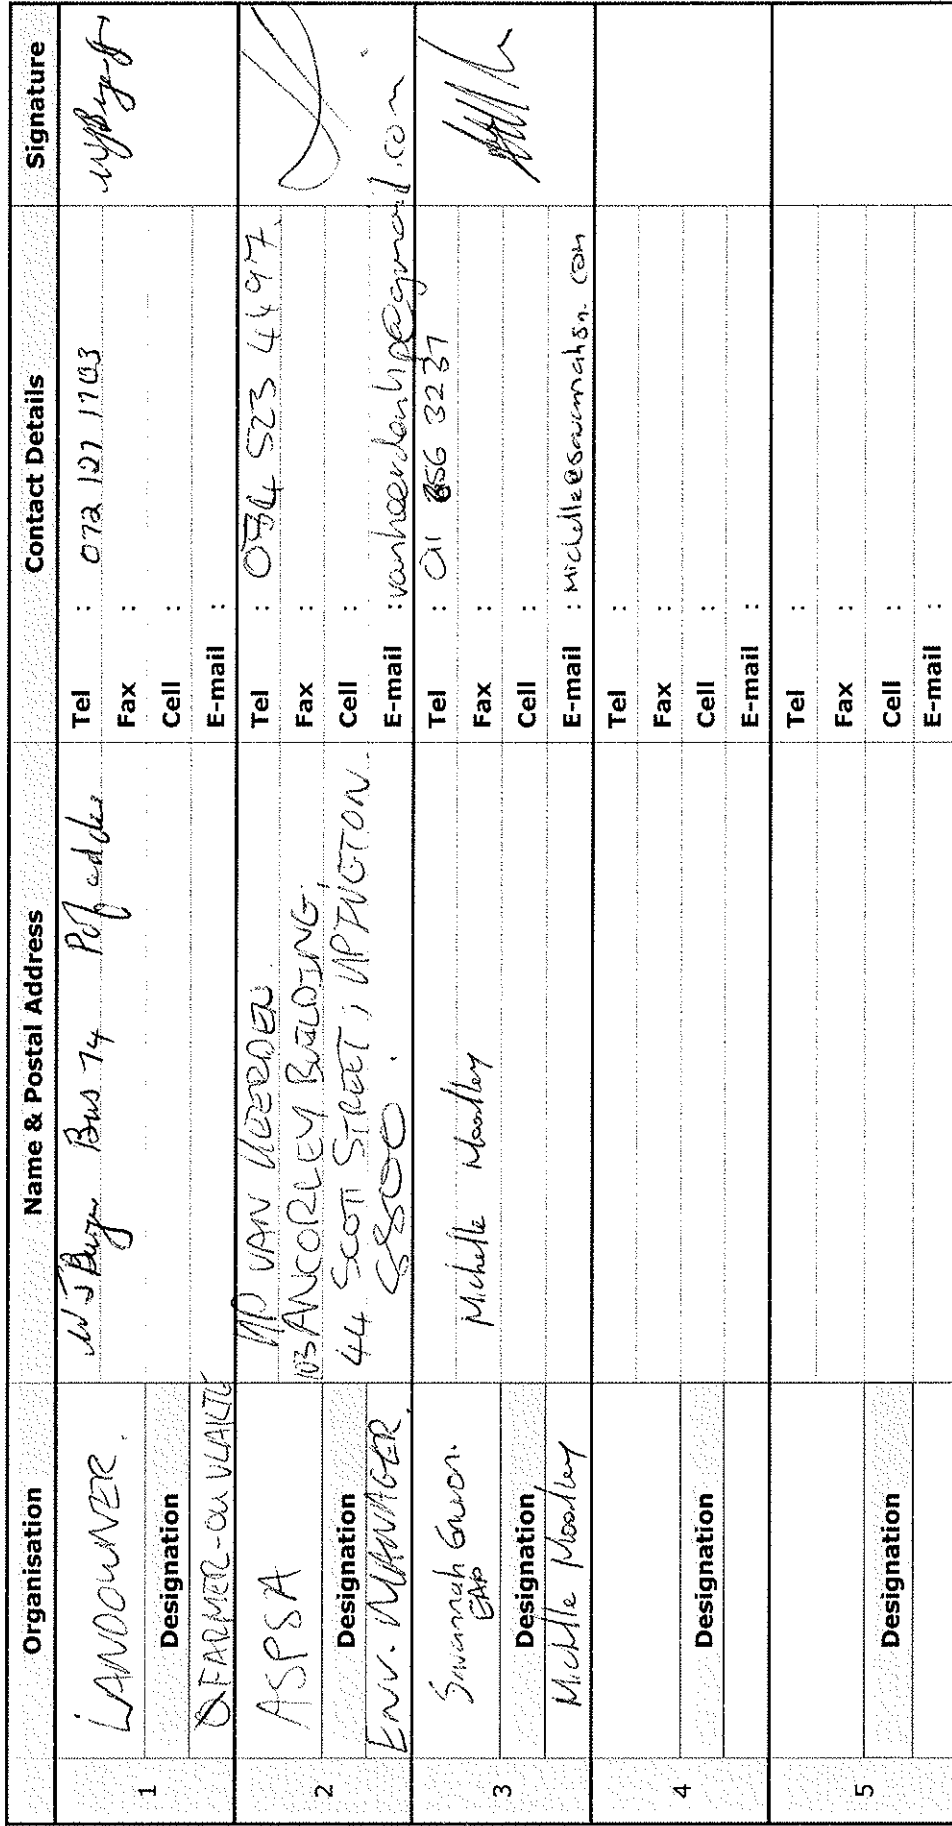 Organisation Name & Postal Address Contact Details Signature
1
LANDOWNER.
Designation
FARMER-OU VLAKTE
Bus 74 Pofadder
Tel : 072 127 1703
Fax :
Cell :
E-mail :
2
ASPSA
Designation
ENV. MANAGER.
VAN HEERDEN.
103 ANCORLEY BUILDING,
44 SCOTT STREET, UPINGTON.
8800.
Tel : 084 523 4497.
Fax :
Cell :
E-mail :
3
Savannah
EAP
Designation
Michelle Moodley
Michelle Moodley
Tel : 011 656 3237
Fax :
Cell :
E-mail : Michelle@savannahsa.com
4
Designation
Tel :
Fax :
Cell :
E-mail :
5
Designation
Tel :
Fax :
Cell :
E-mail :